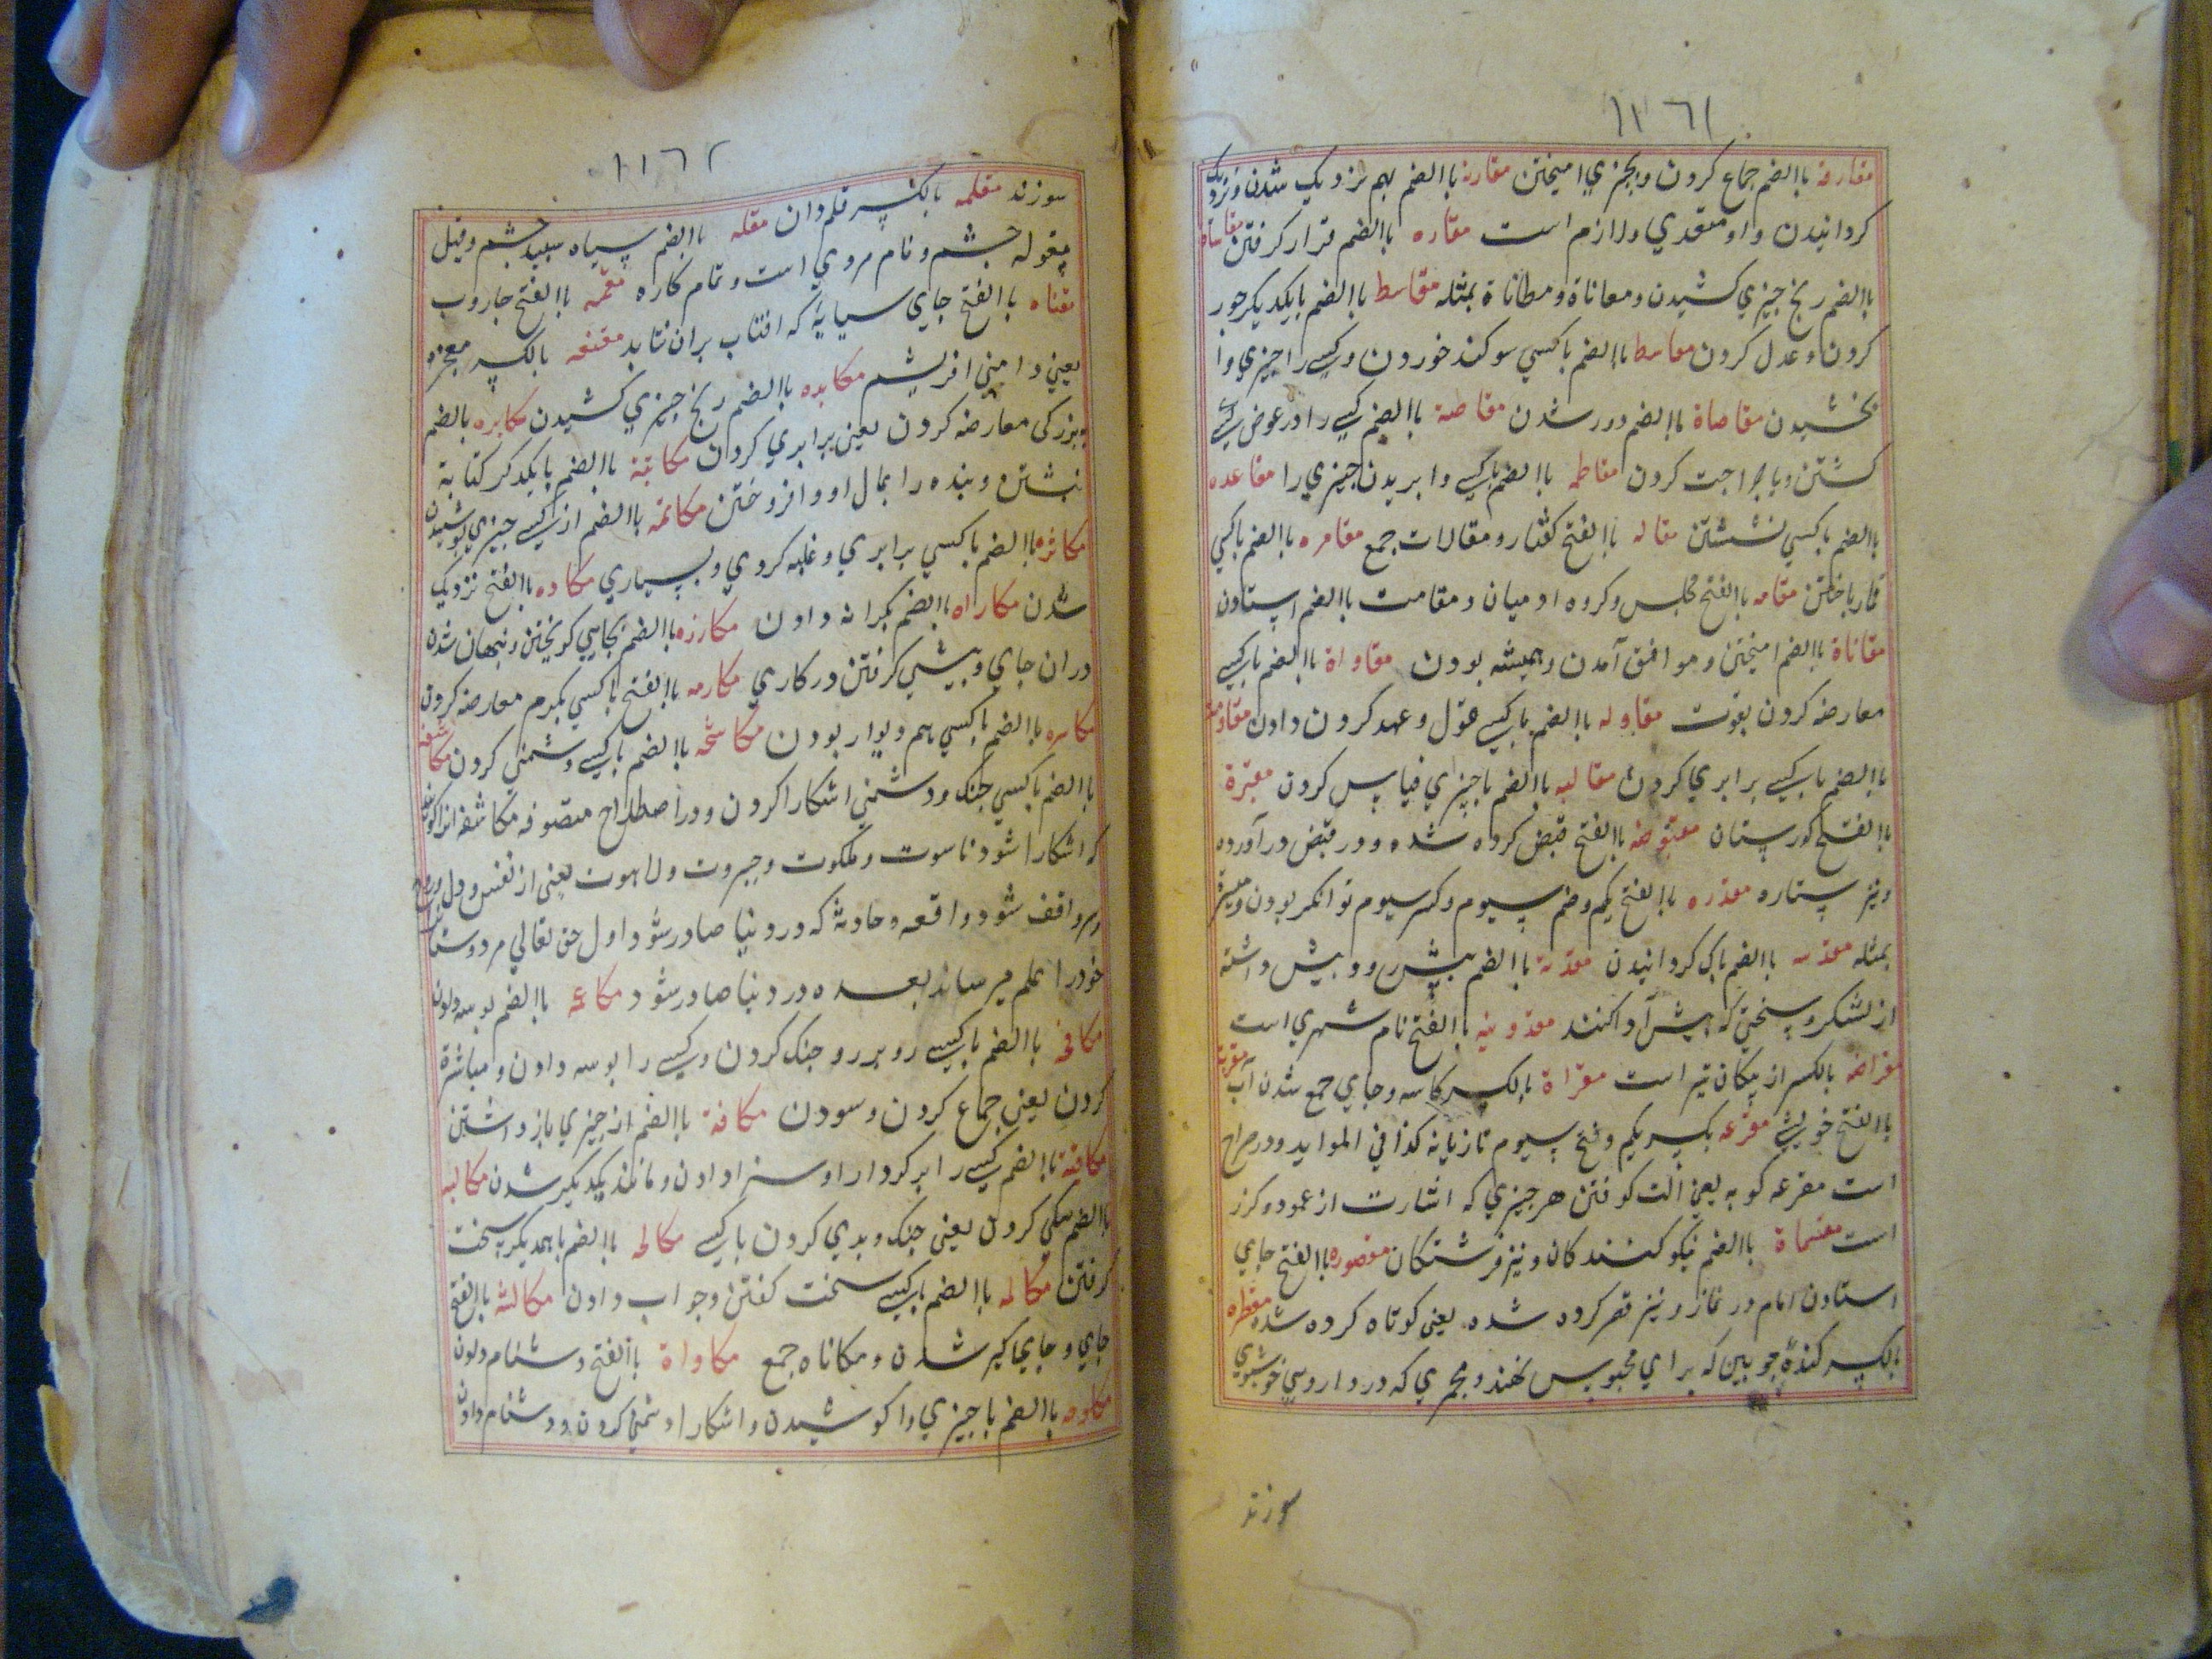 ١١٦١
مقارفه باالضم جماع کردن و بچیزی امیختن مقارنه باالضم بهم نزدیک شدن و نزدیک
کردانیدن و او متعدی و لازم است مقاره باالضم قرار کرفتن مقاساة
باالضم رنج چیزی کشیدن و معاناة و مطاناة بمثله مقاسط باالضم بایکدیکر جور
کردن و عدل کردن باالضم باکسی سوکند خوردن و کسے را چیزی وا
بخشیدن مقاصاة باالضم دور شدن مقاصة باالضم کسے را در عوض کسے
کشتن و با جراحت کردن مقاطه باالضم باکسے وا بریدن چیزی را مقاعده
باالضم باکسی نشستن مقاله باالفتح کفتار و مقالات جمع مقامره باالضم باکسی
قمار باختن مقامه باالفتح مجلس و کروه ادمیان و مقامت باالضم ایستادن
مقاناة باالضم امیختن و موافق آمدن و همیشه بودن مقاواة باالضم باکسے
معارضه کردن بقوت مقاوله باالضم باکسے قول و عهد کردن و ادن مقاومة
باالضم باکسے برابری کردن مقالبه باالضم باچیزی قیاس کردن مقبرة
باالفتح کورستان مقبوضه باالفتح قبض کرده شده و در قبض در آورده
و نیز ستاره مقدره باالفتح یکم و ضم سیوم و کسر سیوم توانکر بودن و میسرة
بمثله مقدسه باالضم پاک کردانیدن مقدمة باالضم پیش رو و پیش داشته
از لشکر و سختی که پیش آوا کنند مقدونیه باالفتح نام شهری است
مقراضه بالکسر از پیکان تیر است مقراة بالکسر کاسه و جای جمع شدن آب مقربة
باالفتح خویشے مقرعه بکسر یکم و فتح سیوم تازیانه کذا فی الموابد و در صراح
است مقرعه کوبه یعنی الت کوفتن هر چیزی که اشارت از عمود و کرز
است مقسماة باالضم نیکو کنندکان و نیز فرشتکان مقصوره باالفتح جای
استادن امام در نماز و نیز قصر کرده شده یعنی کوتاه کرده شده مقطره
بالکسر کنده چوبین که برای محبوس نهند و مجمری که در و داروی خوشبوی
سوزند
١١٦٢
سوزند مقلمه بالکسر قلمدان مقله باالضم سیاه سپید چشم و قیل
مقوله چشم و نام مردی است و تمام کاره مقمه باالفتح جاروب
مقناه باالفتح جای سایه که افتاب بران نتابد مقنعه بالکسر معجزه
یعنی دامنی افریشم مکابده باالضم رنج چیزی کشیدن مکابره باالضم
ببزرکی معارضه کردن یعنی برابری کردن مکاتبة باالضم بایکدکر کتابة
نبشتن و بنده را بمال او وا فروختن مکاتمه باالضم از کسے چیزی پوشیدن
مکاثره باالضم باکسی برابری و غلبه کردی و بسیاری مکاده باالفتح نزدیک
شدن مکاراه باالضم بکرایه دادن مکارزه باالضم بجایی کریختن و پنهان شدن
دران جای و پیشی کرفتن در کاری مکارمه باالفتح باکسی بکرم معارضه کردن
مکاسره باالضم باکسی هم دیوار بودن مکاشحه باالضم باکسے دشمنی کردن مکاشفه
باالضم باکسی جنک و دشمنی اشکارا کردن و در اصطلاح متصوفه مکاشفه انرا کویند
که اشکارا شود ناسوت و ملکوت و جبروت و لاهوت یعنی از نفس و دل و روح
و سر واقف شود و واقعه و حادثه که در دنیا صادر شود اول حق تعالی مر دوستان
خود را علم میرساند بعده در دنیا صادر شود باالضم بوسه دادن
مکافحه باالضم باکسے رو برو جنک کردن و کسے را بوسه دادن و مباشرة
کردن یعنی جماع کردن و سودن مکافة باالضم از چیزی باز داشتن
باالضم کسے را بر کردار او سزا دادن و مانند یکدیکر شدن مکالبه
باالضم سکی کردن یعنی جنک و بدی کردن باکسے مکالحه باالضم باهمدیکر سخت
کرفتن مکالمه باالضم باکسے سخت کفتن و جواب دادن باالفتح
جای و جای کیر شدن و مکاناه جمع مکاواة باالفتح دشنام دادن
مکاوحه باالضم باچیزی وا کوشیدن و اشکارا دشمنی کردن و دشنام دادن